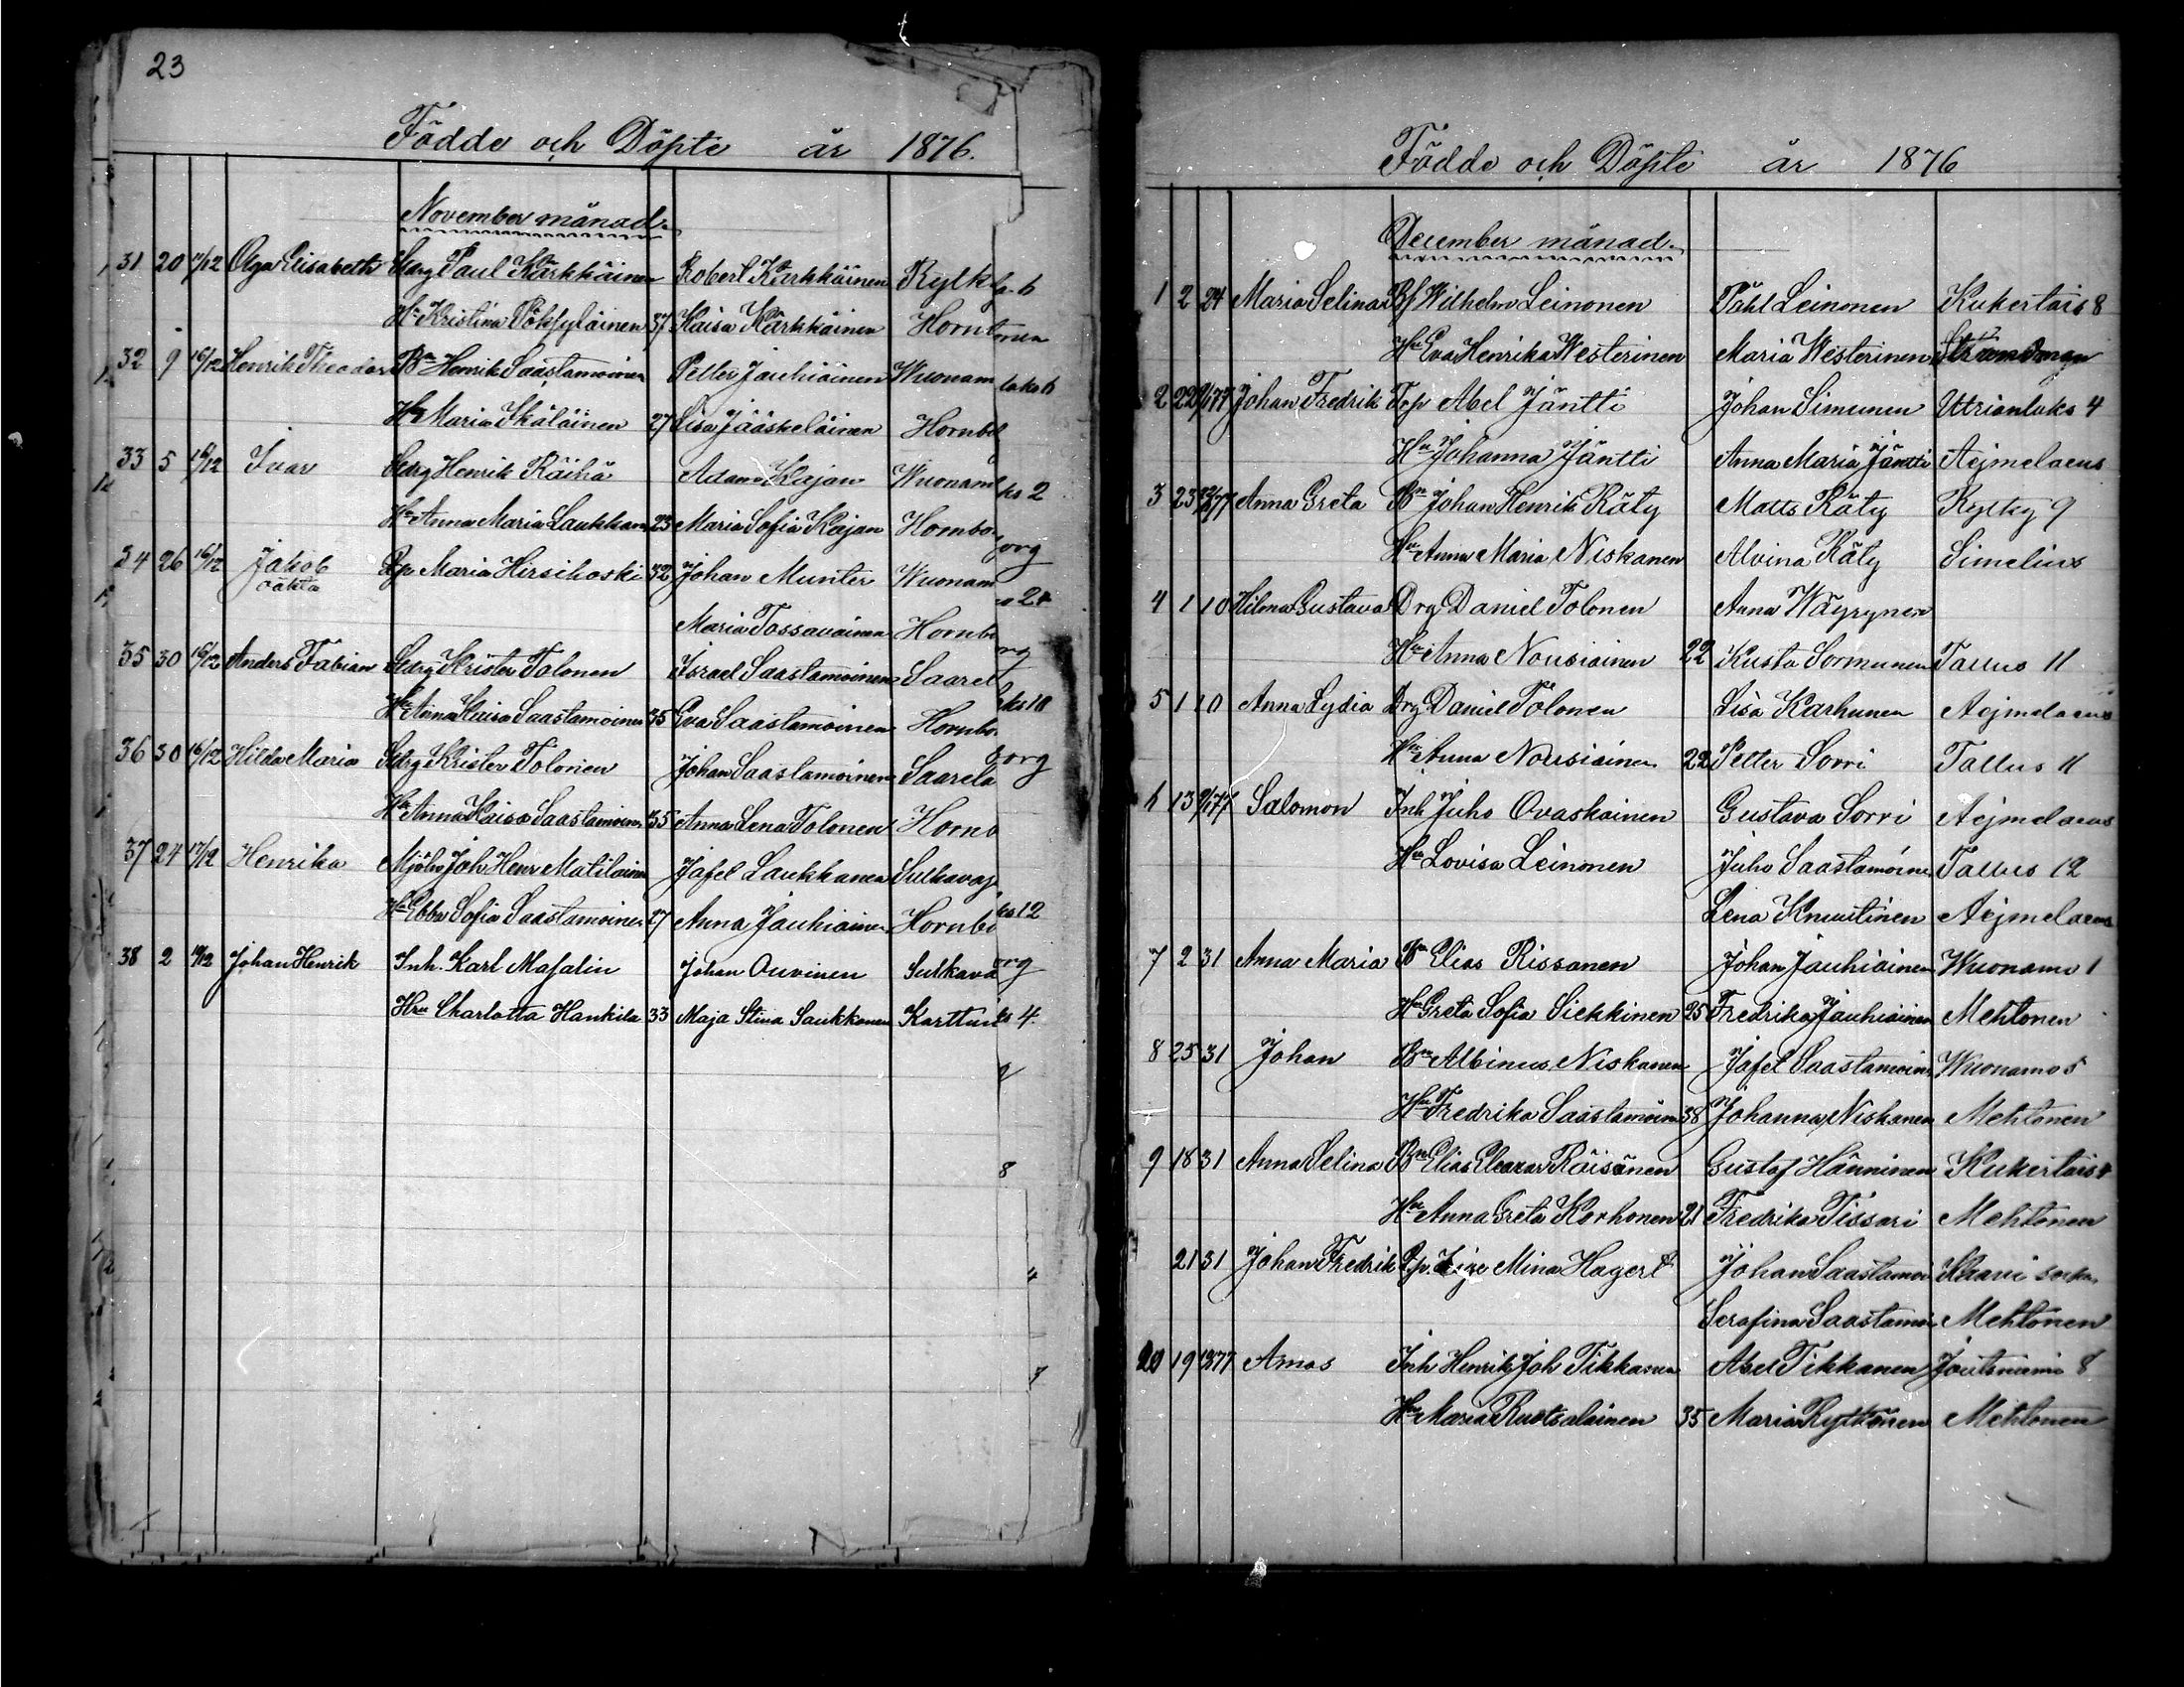 23
Födde och Döpte år 1876.
November månad.
31 20 17/12 Olga Elisabeth Sedrg Paul Kärkkäinen Robert Kärkkäinen Rytk
Hu Kristina Pöksyläinen 37 Kaisa Kärkkäinen Hornb
32 9 16/12 Henrik Theodor Bn Henrik Saastamoinen Petter Jauhiainen Wuonam
Hu Maria Ikäläinen 27 Lisa Jääskeläinen Hornb
33 5 16/12 Ivar Sedrg Henrik Räihä Adam Kajan Wuonam
Hu Anna Maria Laukkanen 23 Maria Sofia Kajan Hornbo
34 26 16/12 Jakob Pp Maria Hirsikoski 32 Johan Munter Wuonam
oäkta
Maria Tossavainen Hornb
35 30 16/12 Anders Fabian Sedrg Krister Tolonen Israel Saastamoinen Saarel
Hu Anna Kaisa Saastamoinen 35 Eva Saastamoinen Hornbo
36 30 16/12 Hilda Maria Sedrg Krister Tolonen Johan Saastamoinen Saarela
Hu Anna Kaisa Saastamoinen 35 Anna Lena Tolonen Hornb
37 24 17/12 Henrika Mjöln Joh Henr Matilainen Jafet Laukkanen Sulkava
Hu Ebba Sofia Saastamoinen 27 Anna Jauhiainen Hornb
38 2 19/12 Johan Henrik Inh. Karl Masalin Johan Ouvinen Sulkava
Hru Charlotta Hankila 33 Maja Stina Saukkonen Karttu
2
org
org
12
org
4.
8
Födde och Döpte år 1876
December månad.
1 2 24 Maria Selina Bf Wilhelm Leinonen Påhl Leinonen Kukertais 8
Hu Eva Henrika Westerinen Maria Westerinen
2 22 Johan Fredrik Torp Abel Jäntti Johan Simunen Utrianlaks 4
Hu Johanna Jäntti Anna Maria Jäntti Aejmelaeus
3 23 Anna Greta Bn Johan Henrik Räty Matts Räty Rytky 9
Hu Anna Maria Niskanen Alvina Räty Simelius
4 1 10 Hilma Gustava Drg Daniel Tolonen Anna Wäyrynen
Hu Anna Nousiainen 22 Kusta Sormunen Tallus 11
5 1 10 Anna Lydia Drg Daniel Tolonen Lisa Karhunen Aejmelaeus
Hu Anna Nousiainen 22 Petter Sorri Tallus 11
6 13 9/1 77 Salomon Inh Juho Ovaskainen Gustava Sorri Aejmelaeus
Hu Lovisa Leinonen Juho Saastamoinen Tallus 12
Lena Knuutinen Aejmelaeus
7 2 31 Anna Maria Bn Elias Rissanen Johan Jauhiainen Wuonamo 1
Hu Greta Sofia Siekkinen 25 Fredrika Jauhiainen Mehtonen
8 25 31 Johan Bn Albinus Niskanen Jafet Saastamoin Wuonamo 5
Hu Fredrika Saastamoinen 38 Johanna Niskanen Mehtonen
9 18 31 Anna Selina Bn Elias Eleazar Räisänen Gustaf Hänninen Kukertais 4
Hu Anna Greta Korhonen 21 Fredrika Tissari Mehtonen
21 31 Johan Fredrik Pp. Mina Hagert Johan Saastamoi Kaavi sockn
Serafina Saastamoi Mehtonen
20 19 Amos Inh Henrik Joh Tikkanen Abel Tikkanen Joutsniemi 8
Hu Maria Ruotsalainen 35 Maria Rytkönen Mehtonen